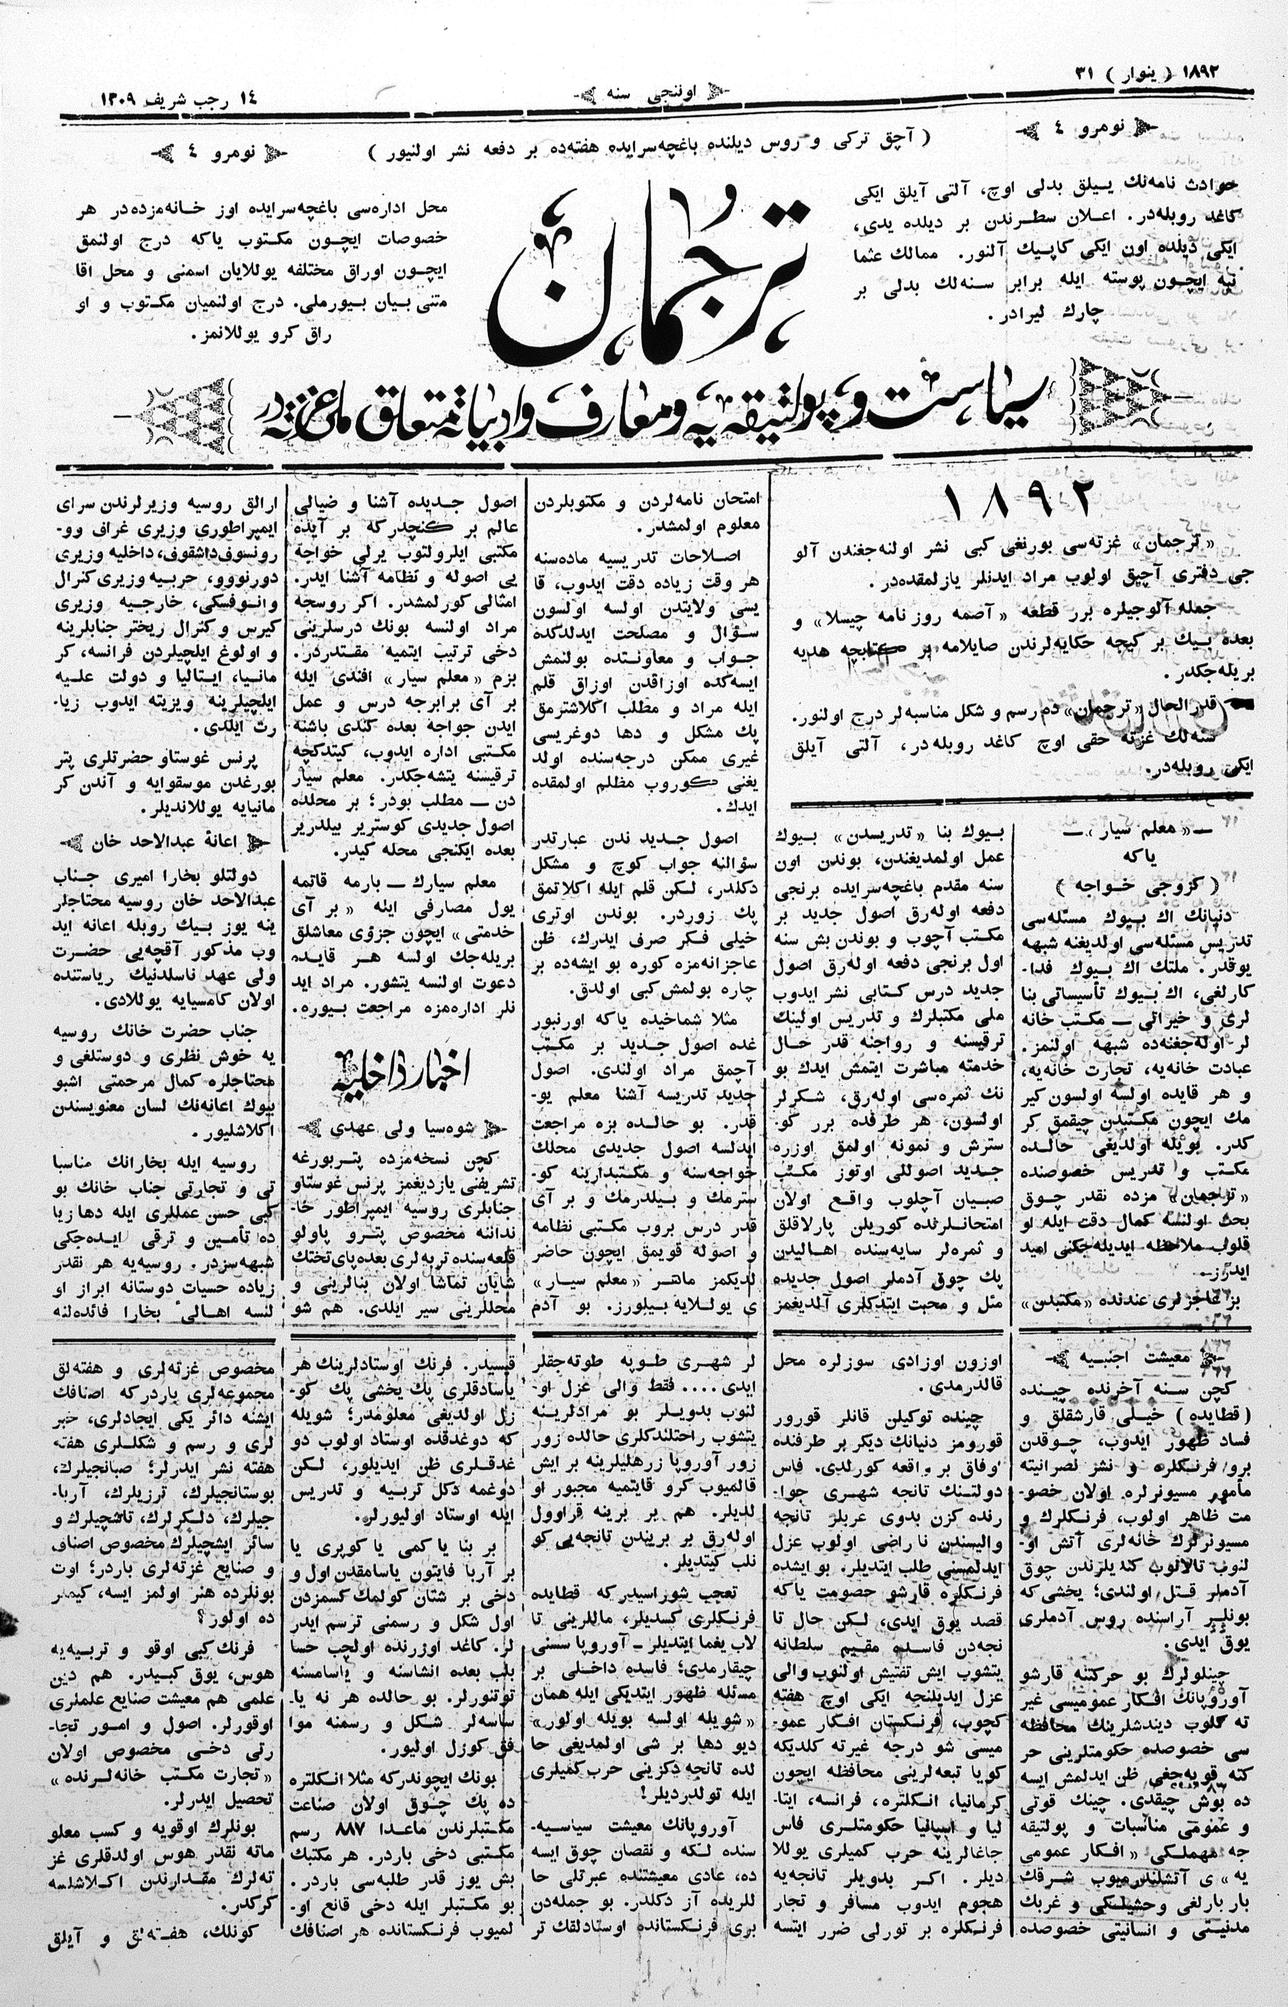 ١٨٩٢ ( ینوار ) ٣١
اوننجی سنه
١٤ رجب شریف ١٣٠٩
نومرو ٤
( آچق ترکی و روس دیلنده باغچه‌سرایده هفته‌ده بر دفعه نشر اولنیور )
نومرو ٤
حوادث نامه‌نك ییلق بدلی اوچ، آلتی آیلق ایکی
کاغد روبله‌در. اعلان سطرندن بر دیلده یدی،
ایکی دیلده اون ایکی کاپیك آلنور. ممالك عثما
نیه ایچون پوسته ایله برابر سنه‌لك بدلی بر
چارك لیرادر.
ترجمان
محل اداره‌سی باغچه‌سرایده اوز خانه‌مزده‌در هر
خصوصات ایچون مکتوب یاکه درج اولنمق
ایچون اوراق مختلفه یوللایان اسمنی و محل اقا
متنی بیان بیورملی. درج اولنمیان مکتوب و او
راق کرو یوللانمز.
سیاست و پولتیقه‌یه و معارف و ادبیاته متعلق ملی غزته‌در
١٨٩٢
«ترجمان» غزته‌سی بورنغی کبی نشر اولنه‌جغندن آلو
جی دفتری آچیق اولوب مراد ایدنلر یازلمقده‌در.
جمله آلوجیلره برر قطعه «آصمه روزنامه چیسلا» و
بعده بیك بر کیجه حکایه‌لرندن صایلامه بر کتابچه هدیه
بریله‌جکدر.
قدر الحال «ترجمان» ده رسم و شکل مناسبه‌لر درج اولنور.
سنه‌لك غزته حقی اوچ کاغد روبله‌در، آلتی آیلق
ایکی روبله‌در.
— «معلم سیار» —
یاکه
( کزوجی خواجه )
دنیانك اك بیوك مسئله‌سی
تدریس مسئله‌سی اولدیغنه شبهه
یوقدر. ملتك اك بیوك فدا-
کارلغی، اك بیوك تأسیساتی بنا
لری و خیراتی — مکتب خانه
لر اوله‌جغنده شبهه اولنمز.
عبادت خانه‌یه، تجارت خانه‌یه،
و هر قایده اولسه اولسون کیر
مك ایچون مکتبدن چیقمق کر
کدر. بویله اولدیغی حالده
مکتب و تدریس خصوصنده
«ترجمان» مزده نقدر چوق
بحث اولنسه کمال دقت ایله او
قلوب ملاحظه ایدیله‌جکنی امید
ایدرز.
بز عاجزلری عندنده «مکتبدن»
بیوك بنا «تدریسدن» بیوك
عمل اولمدیغندن، بوندن اون
سنه مقدم باغچه‌سرایده برنجی
دفعه اوله‌رق اصول جدید بر
مکتب آچوب و بوندن بش سنه
اول برنجی دفعه اوله‌رق اصول
جدید درس کتابی نشر ایدوب
ملی مکتبلرك و تدریس اولینك
ترقیسنه و رواجنه قدر حال
خدمته مباشرت ایتمش ایدك بو
نك ثمره‌سی اوله‌رق، شکرلر
اولسون، هر طرفده برر کو-
سترش و نمونه اولمق اوزره
جدید اصوللی اوتوز مکتب
صبیان آچلوب واقع اولان
امتحانلرنده کوریلن پارلاقلق
و ثمره‌لر سایه‌سنده اهالیدن
پك چوق آدملر اصول جدیده
مثل و محبت ایتدکلری آلدیغمز
امتحان نامه‌لردن و مکتوبلردن
معلوم اولمشدر.
اصلاحات تدریسیه ماده‌سنه
هر وقت زیاده دقت ایدوب، قا
یسی ولایتدن اولسه اولسون
سؤال و مصلحت ایدلدکده
جواب و معاونتده بولنمش
ایسه‌کده اوزاقدن اوزاق قلم
ایله مراد و مطلب اکلاشترمق
پك مشکل و دها دوغریسی
غیری ممکن درجه‌سنده اولد
یغنی کوروب مظلم اولمقده
ایدك.
اصول جدید ندن عبارتدر
سؤالنه جواب کوچ و مشکل
دکلدر، لکن قلم ایله اکلاتمق
پك زوردر. بوندن اوتری
خیلی فکر صرف ایدرك، ظن
عاجزانه‌مزه کوره بو ایشه‌ده بر
چاره بولمش کبی اولدق.
مثلا شماخیده یاکه اورنبور
غده اصول جدید بر مکتب
آچمق مراد اولندی. اصول
جدید تدریسه آشنا معلم یو-
قدر. بو حالده بزه مراجعت
ایدلسه اصول جدیدی محلك
خواجه‌سنه و مکتبدارینه کو-
سترمك و بیلدرمك و بر آی
قدر درس بروب مکتبی نظامه
و اصوله قویمق ایچون حاضر
لدیکمز ماهر «معلم سیار»
ی یوللایه بیلورز. بو آدم
اصول جدیده آشنا و ضیالی
عالم بر کنجدرکه بر آیده
مکتبی ایلرولتوب یرلی خواجه
یی اصوله و نظامه آشنا ایدر.
امثالی کورلمشدر. اکر روسجه
مراد اولنسه بونك درسلرینی
دخی ترتیب ایتمیه مقتدردر.
بزم «معلم سیار» افندی ایله
بر آی برابرجه درس و عمل
ایدن خواجه بعده کندی باشنه
مکتبی اداره ایدوب، کیتدکچه
ترقیسنه یتشه‌جکدر. معلم سیار
دن — مطلب بودر؛ بر محلده
اصول جدیدی کوستریر بیلدریر
بعده ایکنجی محله کیدر.
معلم سیارك — بارمه قاتمه
یول مصارفی اینه «بر آی
خدمتی» ایچون جزؤی معاشلق
بریله‌جك اولسه هر قایده
دعوت اولنسه یتشور. مراد اید
نلر اداره‌مزه مراجعت بیوره.
اخبار داخلیه
شوه‌سیا ولی عهدی
کچن نسخه‌مزده پتربورغه
تشریفنی یازدیغمز پرنس غوستاو
جنابلری روسیه ایمپراطور خا-
نداننه مخصوص پترو پاولو
قلعه‌سنده تربه‌لری بعده پای‌تختك
شایان تماشا اولان بنالرینی و
محللرینی سیر ایلدی. هم شو
ارالق روسیه وزیرلرندن سرای
ایمپراطوری وزیری غراف وو-
رونسوف‌داشقوف، داخلیه وزیری
دورنووو، حربیه وزیری کنرال
وانوفسکی، خارجیه وزیری
کیرس و کنرال ریختر جنابلرینه
و اولوغ ایلچیلردن فرانسه، کر
مانیا، ایتالیا و دولت علیه
ایلچیلرینه ویزیته ایدوب زیا-
رت ایلدی.
پرنس غوستاو حضرتلری پتر
بورغدن موسقوایه و آندن کر
مانیایه یوللاندیلر.
اعانهٔ عبدالاحد خان
دولتلو بخارا امیری جناب
عبدالاحد خان روسیه محتاجلر
ینه یوز بیك روبله اعانه اید
وب مذکور آقچه‌یی حضرت
ولی عهد ناسلدنیك ریاستنده
اولان کامسیایه یوللادی.
جناب حضرت خانك روسیه
یه خوش نظری و دوستلغی و
محتاجلره کمال مرحمتی اشبو
بیوك اعانه‌نك لسان معنویسندن
اکلاشلیور.
روسیه ایله بخارانك مناسبا
تی و تجارتی جناب خانك بو
کبی حسن عمللری ایله دها زیا
ده تأمین و ترقی ایده‌جکی
شبهه‌سزدر. روسیه‌یه هر نقدر
زیاده حسیات دوستانه ابراز او
لنسه اهالیٔ بخارا فائده‌لنه
معیشت اجنبیه
کچن سنه آخرنده چینده
(قطایده) خیلی قارشقلق و
فساد ظهور ایدوب، چوقدن
برو فرنکلره و نشر نصرانیته
مأمور مسیونرلره اولان خصو-
مت ظاهر اولوب، فرنکلرك و
مسیونرلرك خانه‌لری آتش او-
لنوب تالانوب کندیلرندن چوق
آدملر قتل اولندی؛ یخشی که
بونلر آراسنده روس آدملری
یوق ایدی.
چینلولرك بو حرکتنه قارشو
آوروپانك افکار عمومیسی غیر
ته کلوب دیندشلرینك محافظه
سی خصوصده حکومتلرینی حر
کته قویه‌جغی ظن ایدلمش ایسه
ده بوش چیقدی. چینك قوتی
و عمومی مناسبات و پولتیقه
جه مهملکی «افکار عمومی
یه» ی آتشلندرمیوب شرقك
بار بارلغی وحشیلکی و غربك
مدنیتی و انسانیتی خصوصده
اوزون اوزادی سوزلره محل
قالدرمدی.
چینده توکیلن قانلر قورور
قورومز دنیانك دیکر بر طرفنده
اوفاق بر واقعه کورلدی. فاس
دولتنك تانجه شهری جوا-
رنده کزن بدوی عربلر تانجه
والیسندن ناراضی اولوب عزل
ایدلمسی طلب ایتدیلر. بو ایشده
فرنکلره قارشو خصومت یاکه
قصد یوق ایدی، لکن حال تا
نجه‌دن فاسده مقیم سلطانه
یتشوب ایش تفتیش اولنوب والی
عزل ایدیلنجه ایکی اوچ هفته
کچوب، فرنکستان افکار عمو-
میسی شو درجه غیرته کلدیکه
کویا تبعه‌لرینی محافظه ایچون
کرمانیا، انکلتره، فرانسه، ایتا-
لیا و اسپانیا حکومتلری فاس
جاغالرینه حرب کمیلری یوللا
دیلر. اکر بدویلر تانجه‌یه
هجوم ایدوب مسافر و تجار
فرنکلره بر تورلی ضرر ایتسه
لر شهری طوپه طوته‌جقلر
ایدی.... فقط والی عزل او-
لنوب بدویلر بو مرادلرینه
یتشوب راحتلندکلری حالده زور
زور آوروپا زرهلیلرینه بر ایش
قالمیوب کرو قایتمیه مجبور او
لدیلر. هم بر برینه قراوول
اوله‌رق بر بریندن تانجه‌یی کو
نلب کیتدیلر.
تعجب شوراسیدرکه قطایده
فرنکلری کسدیلر، ماللرینی تا
لاب یغما ایتدیلر — آوروپا سسنی
چیقارمدی؛ فاسده داخلی بر
مسئله ظهور ایتدیکی ایله همان
«شویله اولسه بویله اولور»
دیو دها بر شی اولمدیغی حا
لده تانجه دکزینی حرب کمیلری
ایله تولدردیلر!
آوروپانك معیشت سیاسیه-
سنده لکه و نقصان چوق ایسه
ده، عادی معیشتنده عبرتلی حا
للریده آز دکلدر. بو جمله‌دن
بری فرنکستانده اوستادلقك تر
قیسیدر. فرنك اوستادلرینك هر
یاسادقلری پك یخشی پك کو-
زل اولدیغی معلومدر؛ شویله
که دوغدقده اوستاد اولوب دو
غدقلری ظن ایدیلور، لکن
دوغمه دکل تربیه و تدریس
ایله اوستاد اولیورلر.
بر بنا یا کمی یا کوپری یا
بر آربا فایتون یاسامقدن اول و
دخی بر شتان کولمك کسمزدن
اول شکل و رسمنی ترسم ایدر
لر. کاغد اوزرنده اولچب حسا
بلب بعده انشاسنه و یاسامسنه
توتنورلر. بو حالده هر نه یا-
ساسه‌لر شکل و رسمنه موا
فق کوزل اولیور.
بونك ایچوندرکه مثلا انکلتره
ده پك چوق اولان صناعت
مکتبلرندن ماعدا ٨٨٧ رسم
مکتبی دخی باردر. هر مکتبك
بش یوز قدر طلبه‌سی باردر.
بو مکتبلر ایله دخی قانع او-
لمیوب فرنکستانده هر اصنافك
مخصوص غزته‌لری و هفته‌لق
مجموعه‌لری باردرکه اصنافك
ایشنه دائر یکی ایجادلری، خبر
لری و رسم و شکللری هفته
هفته نشر ایدرلر؛ صبانجیلرك،
بوستانجیلرك، ترزیلرك، آربا-
جیلرك، دلکرلرك، تاشچیلرك و
سائر ایشچیلرك مخصوص اصناف
و صنایع غزته‌لری باردر؛ اوت
بونلرده هنر اولمز ایسه، کیملر
ده اولور؟
فرنك کبی اوقو و تربیه‌یه
هوس، یوق کبیدر. هم دین
علمی هم معیشت صنایع علملری
اوقورلر. اصول و امور تجا-
رتی دخی مخصوص اولان
«تجارت مکتب خانه‌لرنده»
تحصیل ایدرلر.
بونلرك اوقویه و کسب معلو
ماته نقدر هوس اولدقلری غز
ته‌لرك مقدارندن اکلاشلسه
کرکدر.
کونلك، هفته‌لق و آیلق